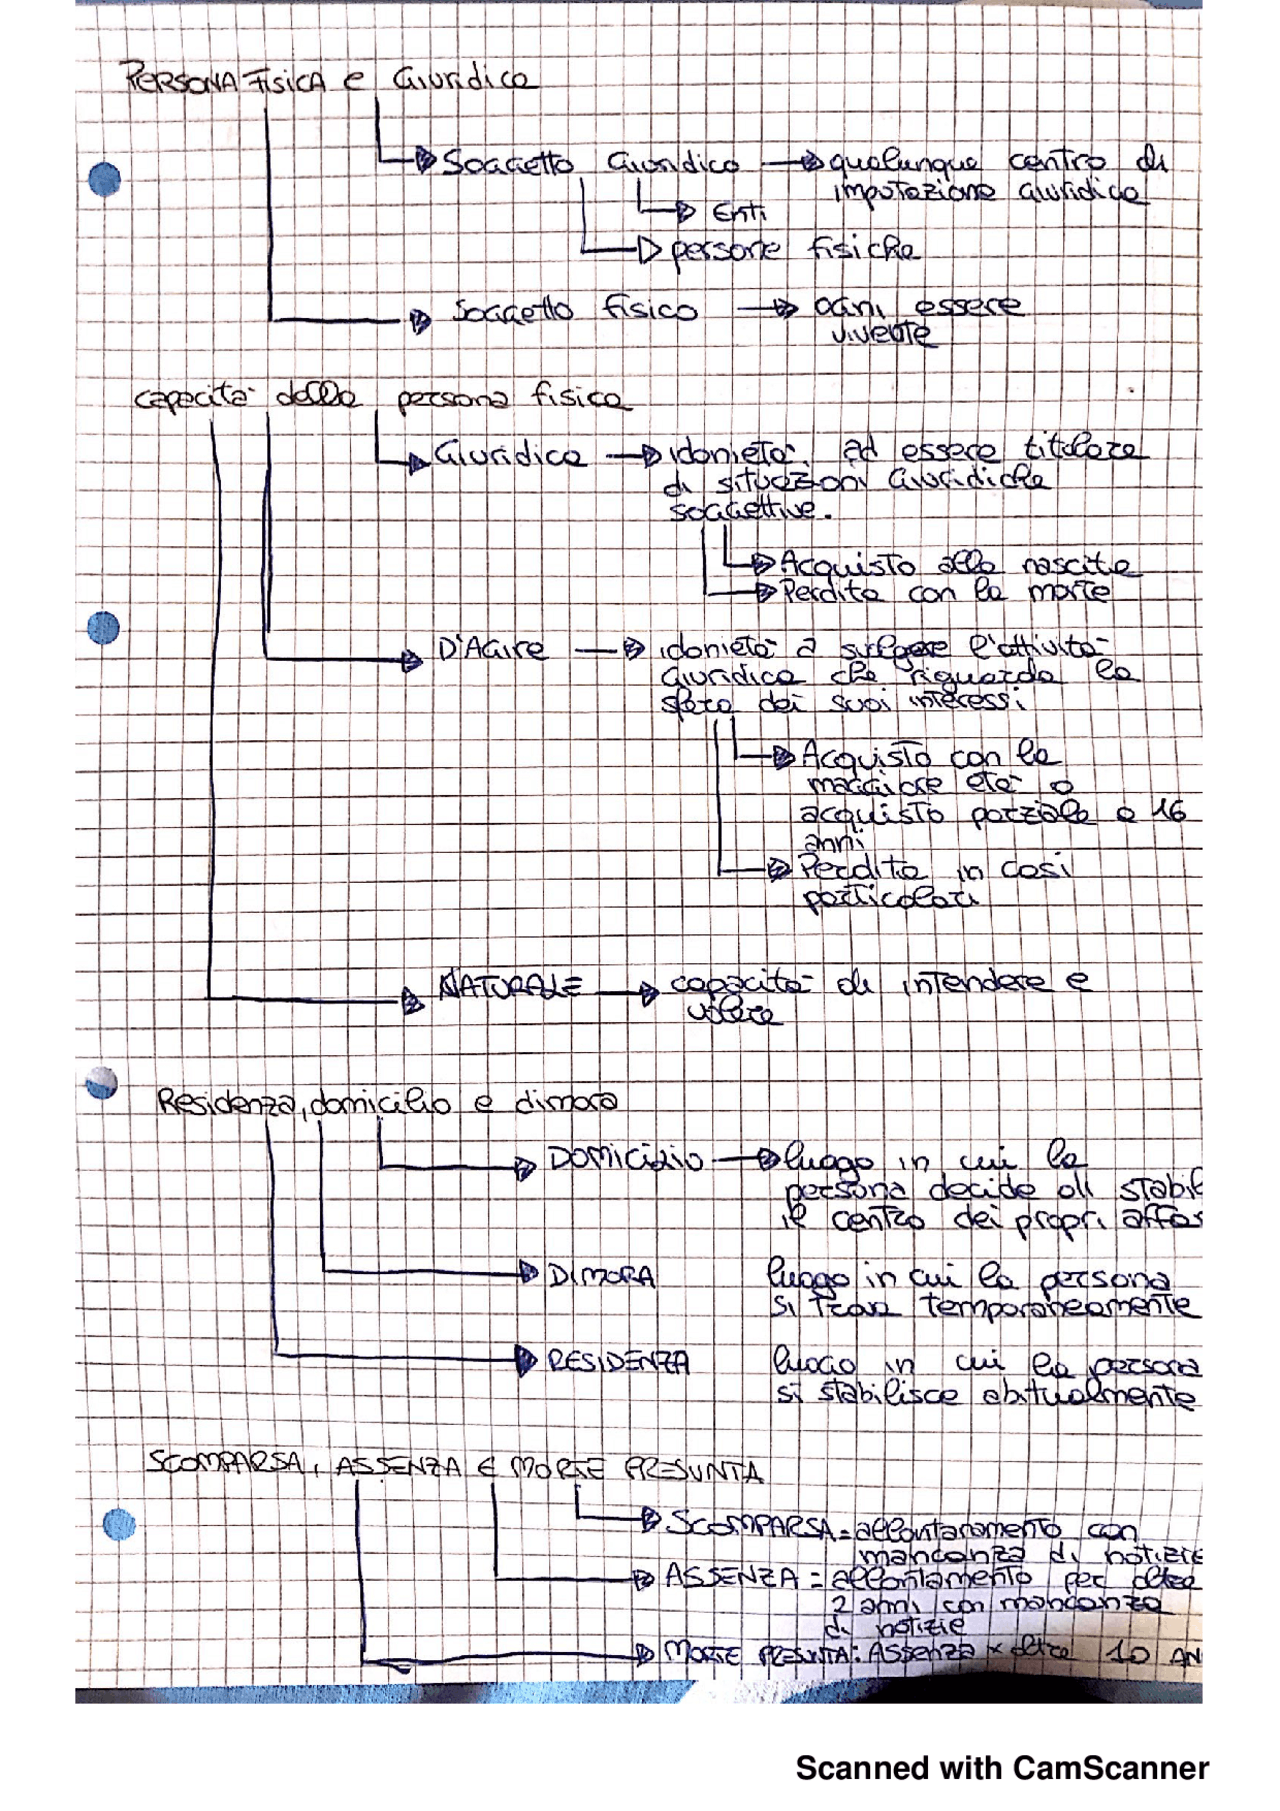 PERSONA FISICA e Giuridica
Soggetto Giuridico qualunque centro di
imputazione giuridica
Enti
persone fisiche
Soggetto fisico ogni essere
vivente
capacità della persona fisica
Giuridica idonietà ad essere titolare
di situazioni Giuridiche
soggettive.
Acquisto alla nascita
Perdita con la morte
D'Agire idonietà a svolgere l'attività
Giuridica che riguarda la
sfera dei suoi interessi
Acquisto con la
maggiore età o
acquisto parziale a 16
anni
Perdita in casi
particolari
NATURALE capacità di intendere e
volere
Residenza, domicilio e dimora
DOMICILIO luogo in cui la
persona decide di stabil
il centro dei propri affar
DIMORA luogo in cui la persona
si trova temporaneamente
RESIDENZA luogo in cui la persona
si stabilisce abitualmente
SCOMPARSA, ASSENZA E MORTE PRESUNTA
SCOMPARSA = allontanamento con
mancanza di notizie
ASSENZA = allontamento per oltre
2 anni con mancanza
di notizie
MORTE PRESUNTA: Assenza x oltre 10 AN
Scanned with CamScanner